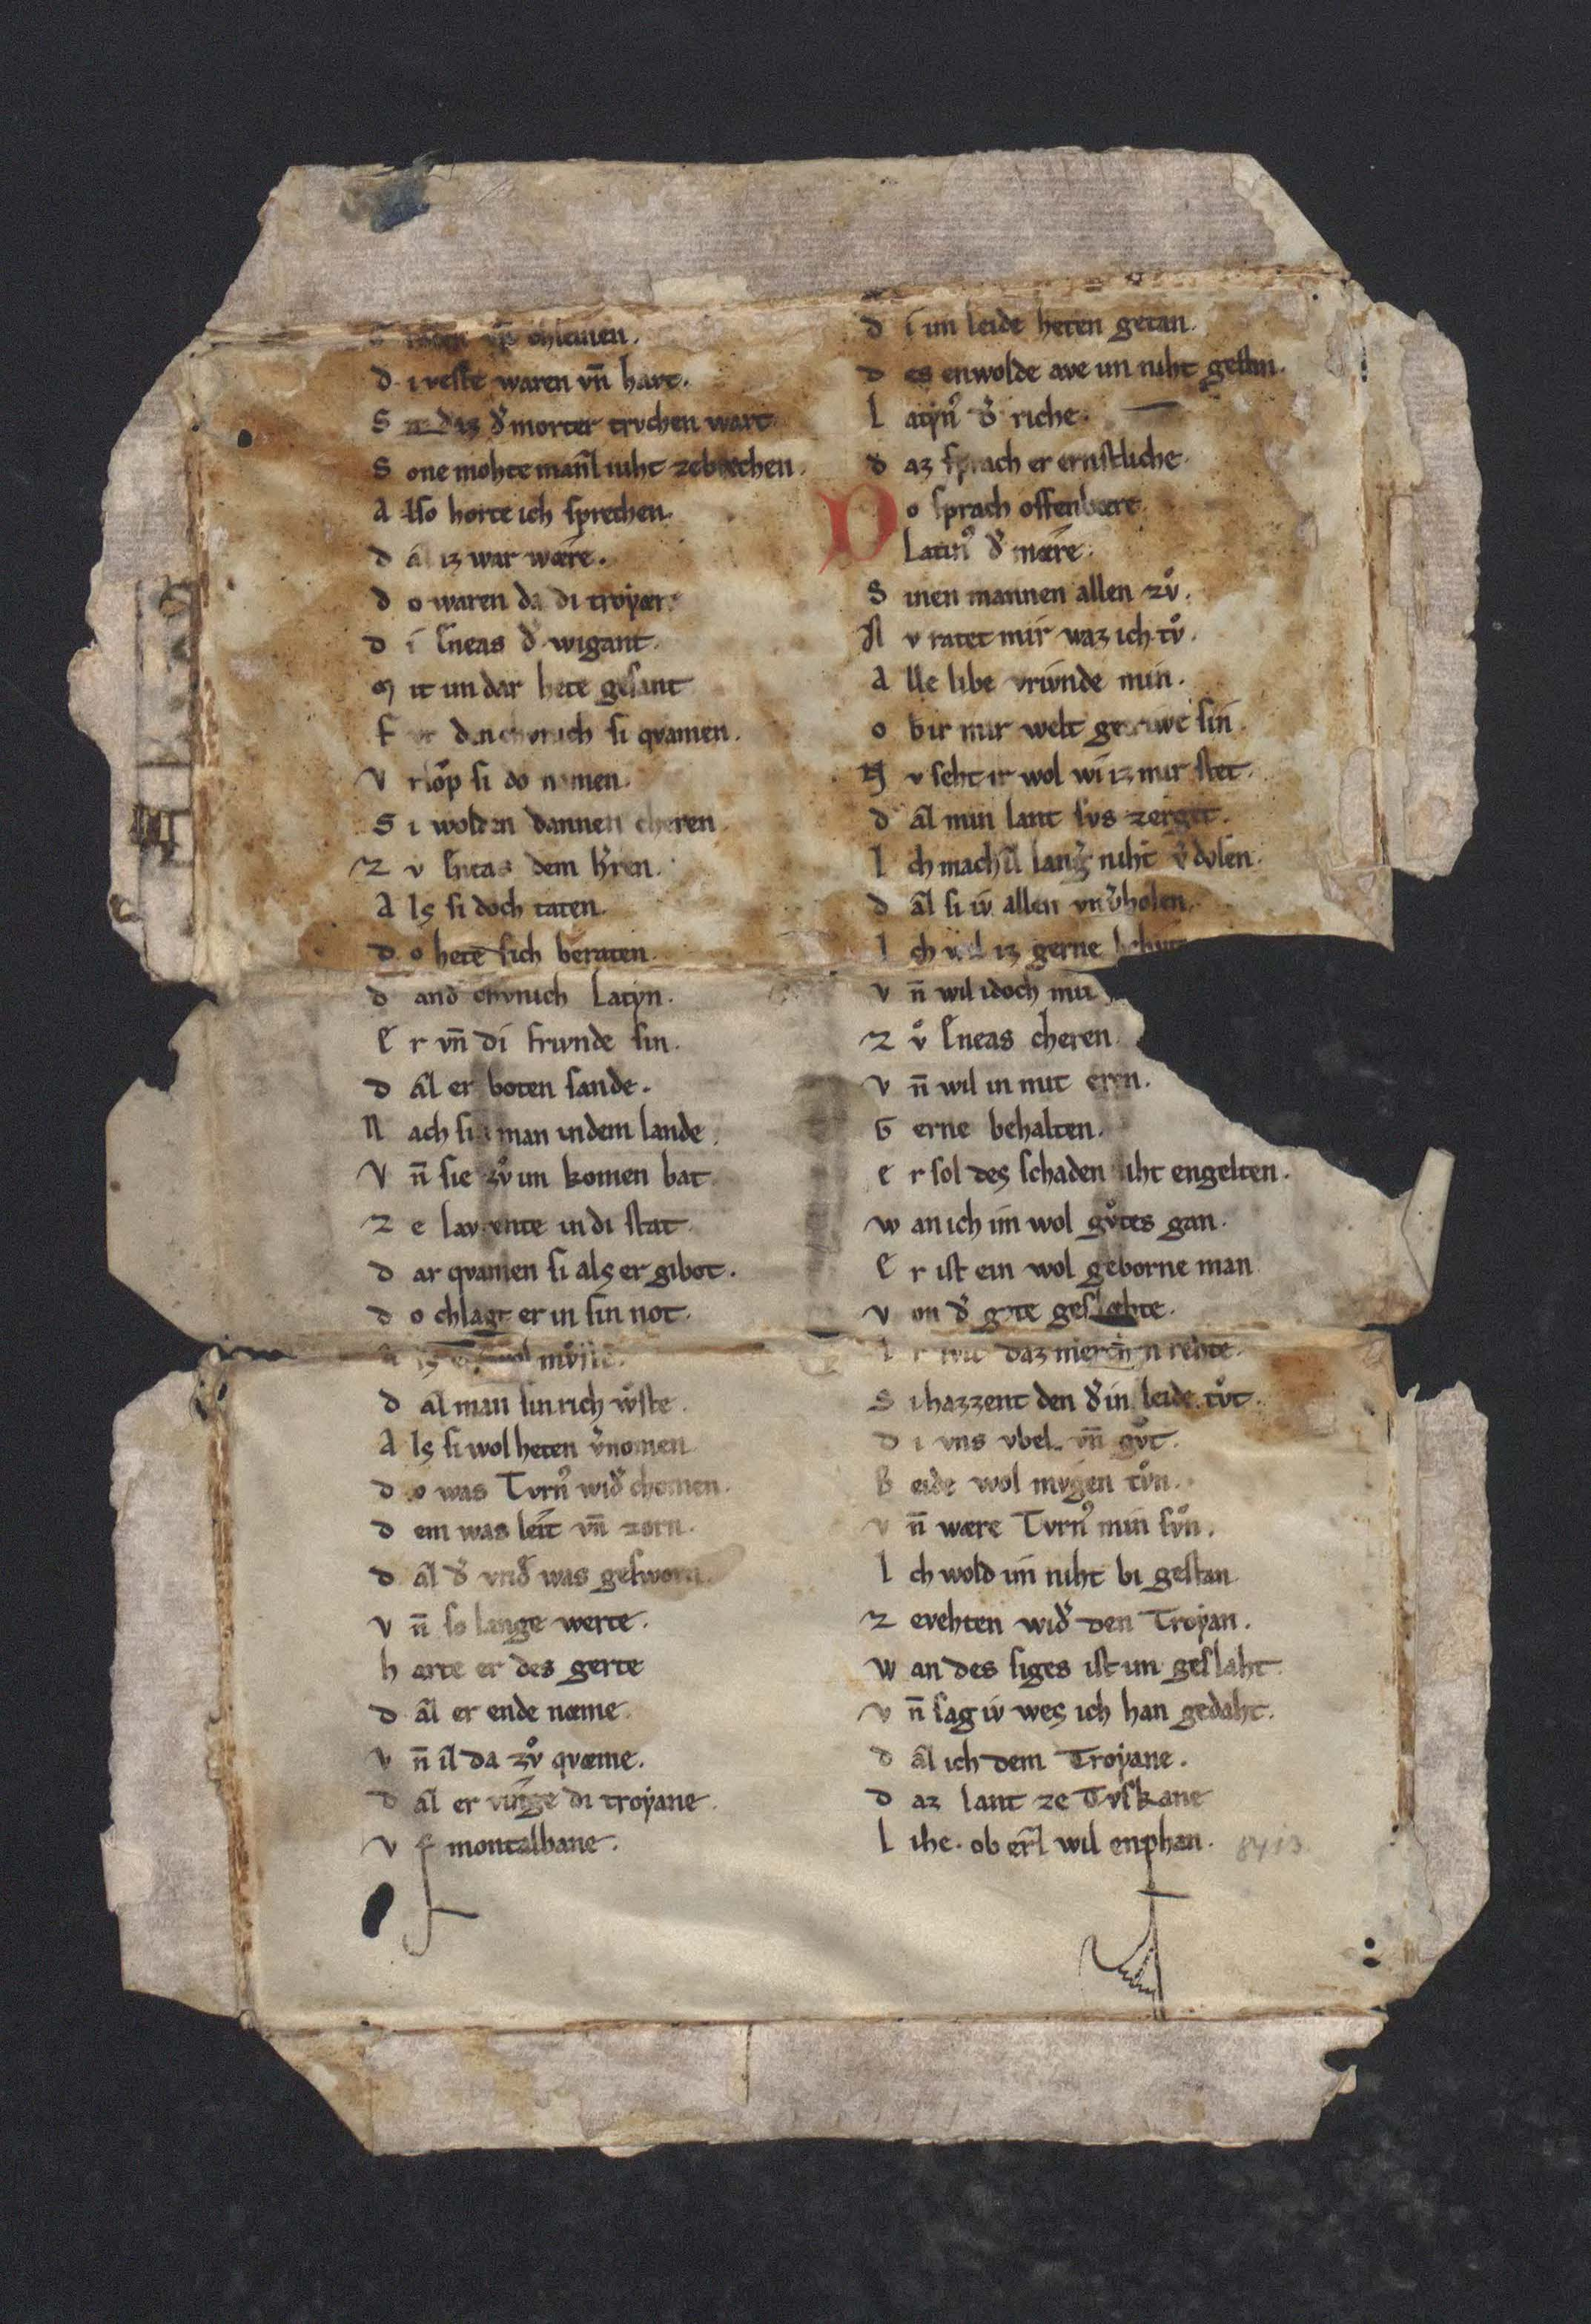 chiemen.
d i veste waren vn̄ hart.
S daz d͛ morter trvchen wart.
S one mohte man̄l niht zebrechen.
A lso horte ich sprechen.
d a͂l iz war wære.
d o waren da di troyær.
d i Eneas d͛ wigant.
M it im dar hete gesant
F si qvamen.
V rlo͛p si do namen.
S i wolden dannen cheren
Z v Eneas dem h͛ren.
A lſ si doch taten.
d o hete sich beraten.
d and chvnich Latyn.
E r vn̄ di frivnde sin.
d a͂l er boten sande.
N ach man in dem lande.
V n̄ sie zv̊ im komen bat.
Z e lavrente in di stat.
d ar qvamen si alſ er gibot.
d o chlagt er in sin not.
mv̊ste.
d a͂l man sin rich wͦste.
A lſ si wol heten v͛nomen
d o was Tvrn᾿ wid͛ chomen.
d em was leit vn̄ zorn.
d a͂l d͛ vrid͛ was gesworn.
V n̄ so lange werte.
h arte er des gerte
d a͂l er ende næme.
V n̄ il da zv̊ qvæme.
d a͂l er vinge di troyane.
V f montalbane.
d i im leide heten getan.
d es enwolde ave im niht gestan.
L atyn᾿ d͛ riche.
d az sprach er ernstliche.
D o sprach offenbære
Latin᾿ d͛ mære.
S inen mannen allen zv̊.
N v ratet mir waz ich tv̊.
A lle libe vrivnde min.
o b ir mir welt getriwe sin.
N v seht ir wol wi iz mir stet.
d a͂l min lant svs zerget.
I ch mach il lang͛ niht v͛dolen.
d a͂l si iv̓ allen vnv͛holen.
I ch wil iz gerne
V n̄ wil idoch mit
Z v̊ Eneas cheren.
V n̄ wil in mit eren.
G erne behalten.
e r sol des schaden niht engelten.
w an ich im wol gv̊tes gan.
E r ist ein wol geborne man
V on d͛ gote geslæhte.
daz rehte.
S i hazzent den d͛ in leide tv̊t.
d i vns vbel vn̄ gv̊t.
B eide wol mvgen tv̊n.
V n̄ wære Tvrn᾿ min sv̊n.
I ch wold im niht bi gestan
Z evehten wid͛ den Troyan.
W an des siges ist im geslaht.
V n̄ sag iv̓ wes ich han gedaht.
d a͂l ich dem Troyane.
d az lant ze Tvskane
L ihe. ob er͂l wil enphan. 8413.